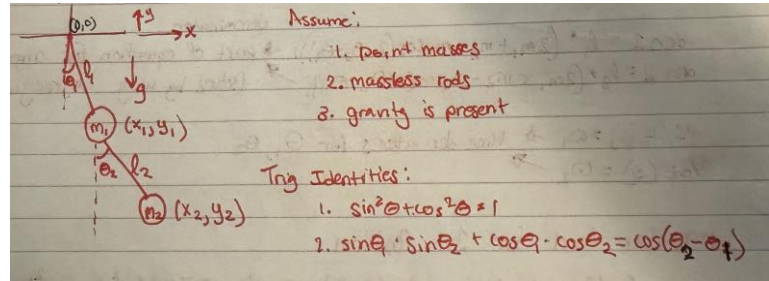 (0,0)
y
x
g
θ₁
l₁
m₁ (x₁,y₁)
θ₂
l₂
m₂ (x₂,y₂)
Assume:
1. point masses
2. massless rods
3. gravity is present
Trig Identities:
1. sin²θ+cos²θ=1
2. sinθ₁·sinθ₂ + cosθ₁·cosθ₂ = cos(θ₂-θ₁)